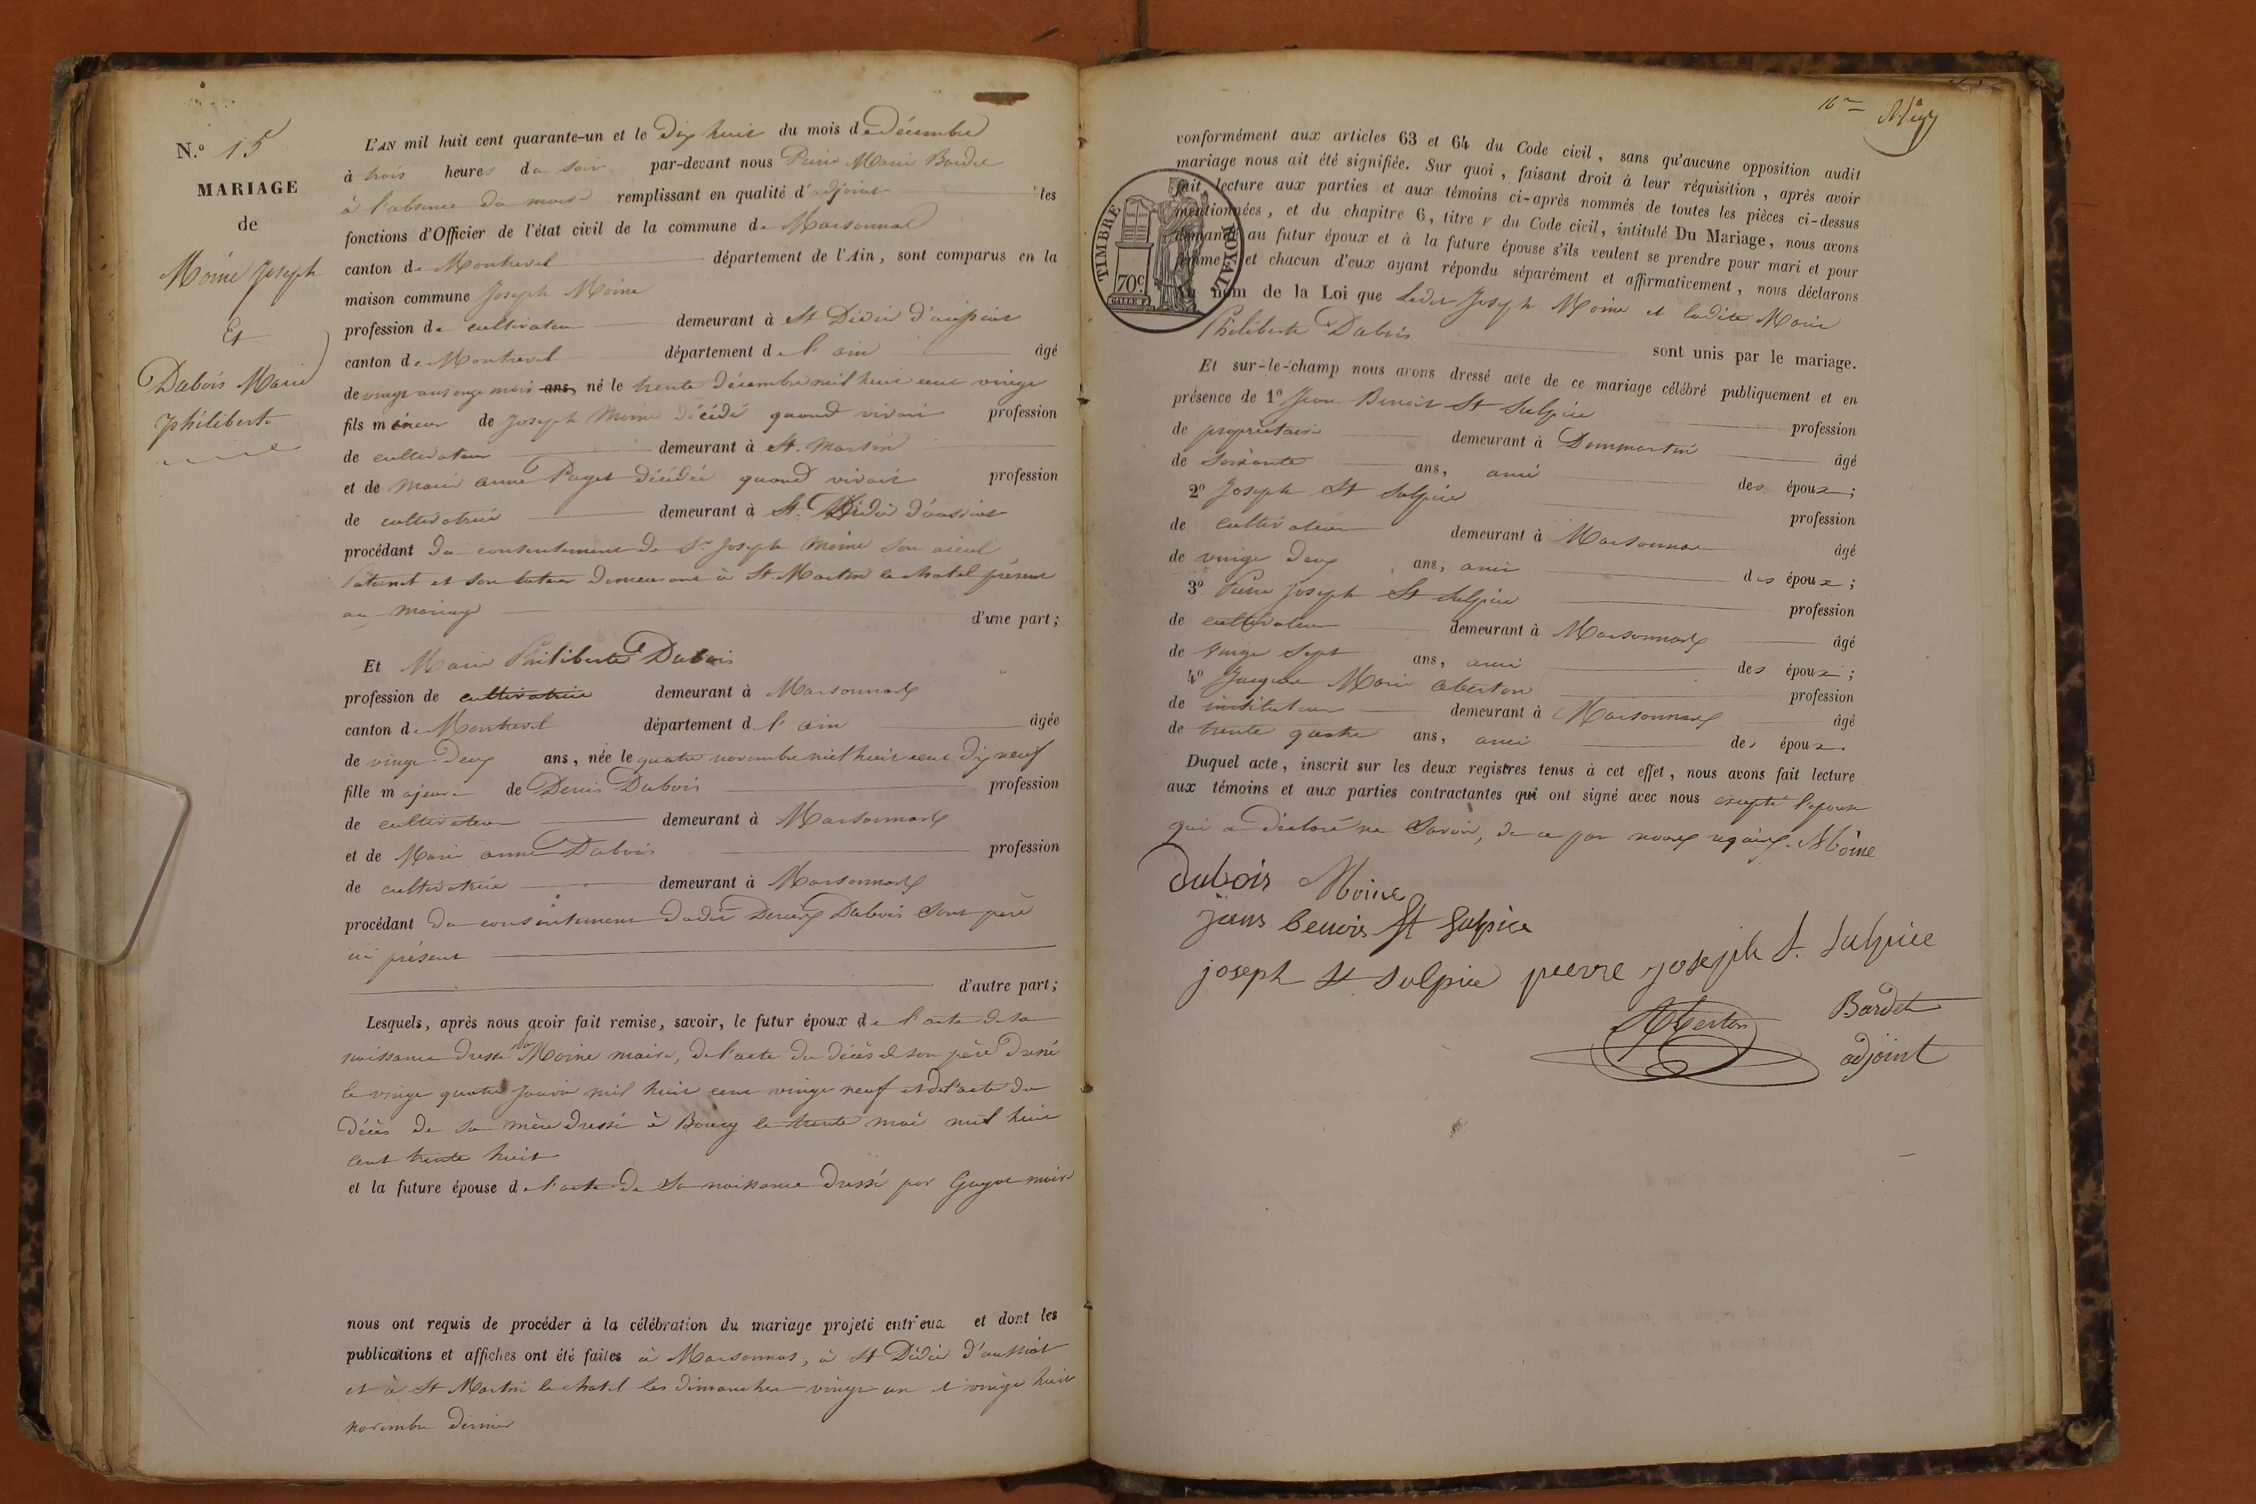 N.º 15
MARIAGE
de
Moine Joseph
Et
Dubois Marie
philiberte
L'AN mil huit cent quarante-un et le dix huit du mois de décembre
à trois heures du soir par-devant nous Pierre Marie Bardet
à l'absence du maire remplissant en qualité d'adjoint les
fonctions d'Officier de l'état civil de la commune de Marsonnas
canton de Montrevel département de l'Ain, sont comparus en la
maison commune Joseph Moine
profession de cultivateur demeurant à St Didier d'aussiat
canton de Montrevel département de l'ain âgé
de vingt ans onze mois ans, né le trente décembre mil huit cent vingt
fils mineur de Joseph Moine décédé quand vivait profession
de cultivateur demeurant à St. Martin
et de marie anne Puget décédée quand vivait profession
de cultivatrice demeurant à St. Didier d'aussiat
procédant du consentement de Sr Joseph Moine son aieul
Paternel et son tuteur demeurant à St Martin le chatel présent
au mariage d'une part;
Et Marie Philiberte Dubois
profession de cultivatrice demeurant à Marsonnas
canton de Montrevel département de l'ain âgée
de vingt deux ans, née le quatre novembre mil huit cent dix neuf
fille majeure de Denis Dubois profession
de cultivateur demeurant à Marsonnas
et de Marie anne Dubois profession
de cultivatrice demeurant à Marsonnas
procédant du consentement dudit Denis Dubois son père
ici présent
d'autre part;
Lesquels, après nous avoir fait remise, savoir, le futur époux de l'acte de sa
naissance dressé par Moine maire, de l'acte du décès de son père
le vingt quatre janvier mil huit cent vingt neuf et de l'acte du
décès de sa mère dressé à Bourg le trente mai mil huit
cent trente huit
et la future épouse de l'acte de sa naissance dressé par Guyot maire
nous ont requis de procéder à la célébration du mariage projeté entr'eux et dont les
publications et affiches ont été faites à Marsonnas, à St Didier d'aussiat
et à St Martin le chatel les dimanches vingt un et vingt huit
novembre dernier
16me
conformément aux articles 63 et 64 du Code civil, sans qu'aucune opposition audit
mariage nous ait été signifiée. Sur quoi, faisant droit à leur réquisition, après avoir
fait lecture aux parties et aux témoins ci-après nommés de toutes les pièces ci-dessus
mentionnées, et du chapitre 6, titre V du Code civil, intitulé Du Mariage, nous avons
demandé au futur époux et à la future épouse s'ils veulent se prendre pour mari et pour
femme, et chacun d'eux ayant répondu séparément et affirmativement, nous déclarons
Au nom de la Loi que Ledit Joseph Moine et ladite Marie
Philiberte Dubois sont unis par le mariage.
TIMBRE ROYAL
70c
Et sur-le-champ nous avons dressé acte de ce mariage célébré publiquement et en
présence de 1º Jean Benoit St Sulpice profession
de propriétaire demeurant à Dommartin âgé
de soixante ans, ami des époux;
2º Joseph St Sulpice profession
de cultivateur demeurant à Marsonnas âgé
de vingt deux ans, ami des époux;
3º Pierre Joseph St Sulpice profession
de cultivateur demeurant à Marsonnas âgé
de vingt sept ans, ami des époux;
4º Jacques Marie Aberton profession
de instituteur demeurant à Marsonnas âgé
de trente quatre ans, ami des époux.
Duquel acte, inscrit sur les deux registres tenus à cet effet, nous avons fait lecture
aux témoins et aux parties contractantes qui ont signé avec nous excepté l'épouse
qui a déclaré ne savoir, de ce par nous requis. Moine
Dubois Moine
jean benoit St Sulpice
joseph st sulpice pierre joseph St. Sulpice
Aberton Bardet
adjoint